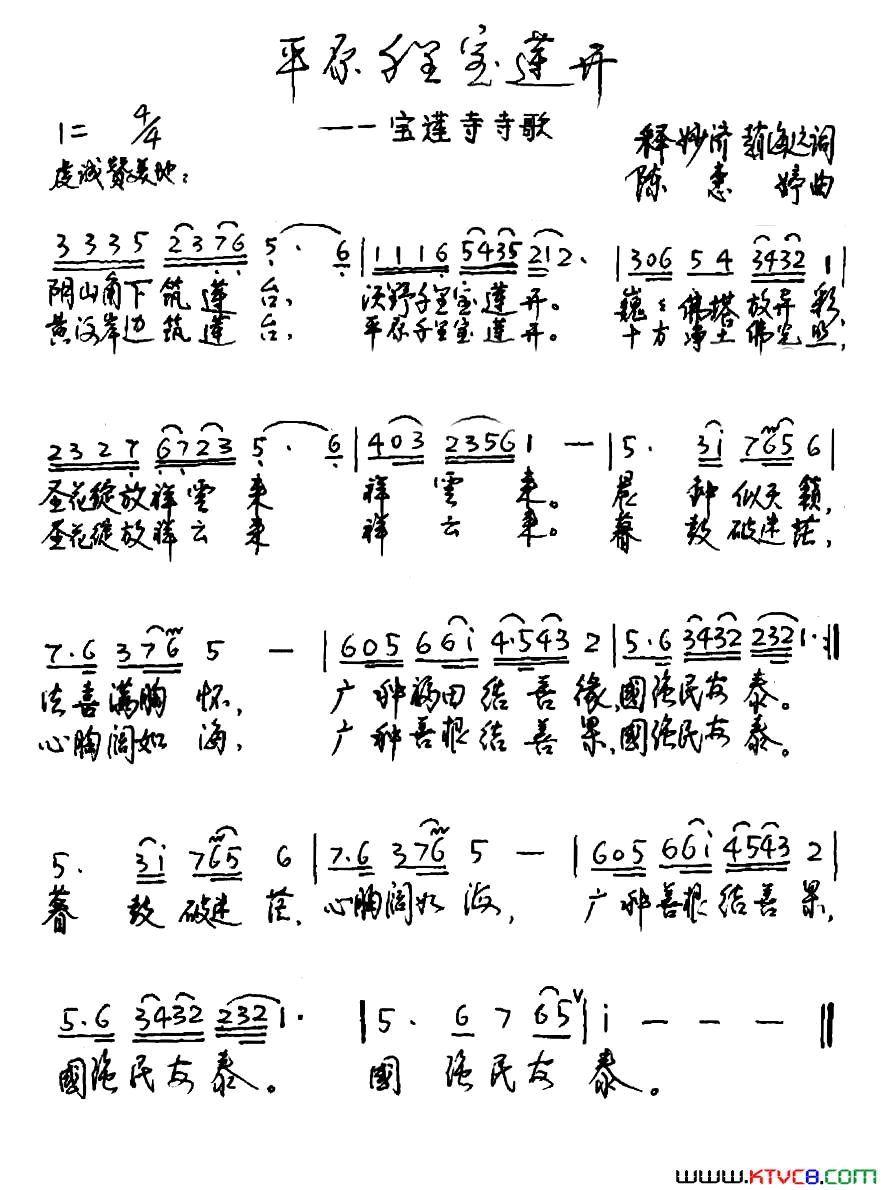 平原千里宝莲开
1= 4/4
——宝莲寺寺歌
释妙济 赵海廷词
虔诚赞美地:
陈惠婷曲
3 3 3 5 2 3 7 6 5 · 6 | 1 1 1 6 5 4 3 5 2 1 2 · | 3 0 6 5 4 3 4 3 2 1 |
阴山角下筑莲台, 沃野千里宝莲开。 巍巍佛塔放异彩,
黄河岸边筑莲台, 平原千里宝莲开。 十方净土佛光照,
2 3 2 7 6 7 2 3 5 · 6 | 4 0 3 2 3 5 6 1 — | 5 · 3 i 7 6 5 6 |
圣花绽放祥雲来 祥雲来。 晨钟似天籁,
圣花绽放祥云来 祥云来。 暮鼓破迷茫,
7 · 6 3 7 6 5 — | 6 0 5 6 6 i 4 · 5 4 3 2 | 5 · 6 3 4 3 2 2 3 2 1 · :||
法喜满胸怀, 广种福田结善缘,國强民安泰。
心胸阔如海, 广种善根结善果,國强民安泰。
5 · 3 i 7 6 5 6 | 7 · 6 3 7 6 5 — | 6 0 5 6 6 i 4 5 4 3 2 |
暮鼓破迷茫, 心胸阔如海, 广种善根结善果,
5 · 6 3 4 3 2 2 3 2 1 · | 5 · 6 7 6 5 V | i — — — ||
國强民安泰。 國强民安泰。
www.KTVC8.COM